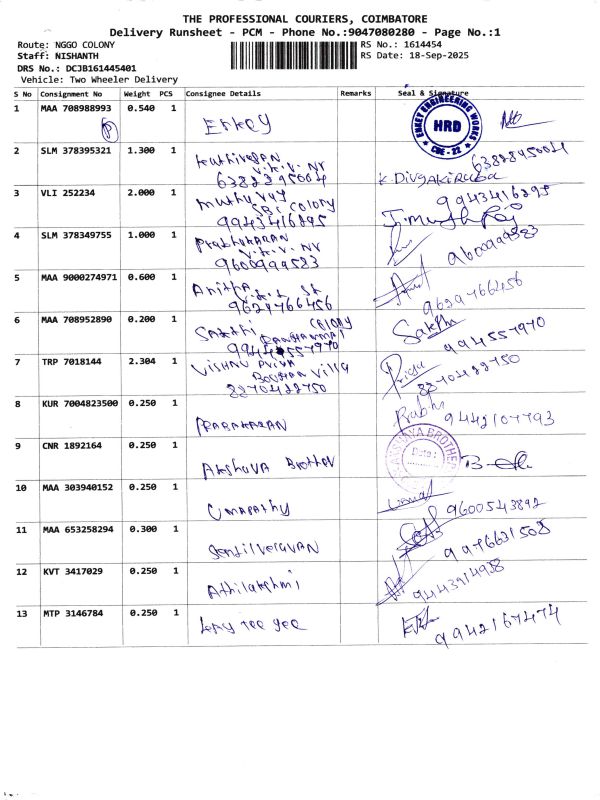 THE PROFESSIONAL COURIERS, COIMBATORE
Delivery Runsheet - PCM - Phone No.:9047080280 - Page No.:1
Route: NGGO COLONY
RS No.: 1614454
Staff: NISHANTH
RS Date: 18-Sep-2025
DRS No.: DCJB161445401
Vehicle: Two Wheeler Delivery
S No Consignment No Weight PCS Consignee Details Remarks Seal & Signature
1 MAA 708988993 0.540 1 Enkey
P
ENKEY ENGINEERING WORKS
HRD
CBE - 22
2 SLM 378395321 1.300 1 V.K.V. Nr
6382895004 K. Divya 6382895004
3 VLI 252234 2.000 1 Muthuvaj
SBI Colony
9943416895 9943416895
4 SLM 378349755 1.000 1 Prabhakaran
V.K.V. Nr
9600999583 9600999583
5 MAA 9000274971 0.600 1 Anitha
V.K.L St
9629766456 9629766456
6 MAA 708952890 0.200 1 Sakthi Colony
9944557970 Sakthi 9944557970
7 TRP 7018144 2.304 1 Vishnu Priya
Villa
8870422750 Priya 8870422750
8 KUR 7004823500 0.250 1 Prabakaran Prabhu 9442107793
9 CNR 1892164 0.250 1 Akshaya Brother
AKSHAYA BROTHER
Date :
10 MAA 303940152 0.250 1 Umapathy 9600543892
11 MAA 653258294 0.300 1 Sentilvelavan 9976631508
12 KVT 3417029 0.250 1 Athilakshmi 9443914938
13 MTP 3146784 0.250 1 Tee Gee 9942167474